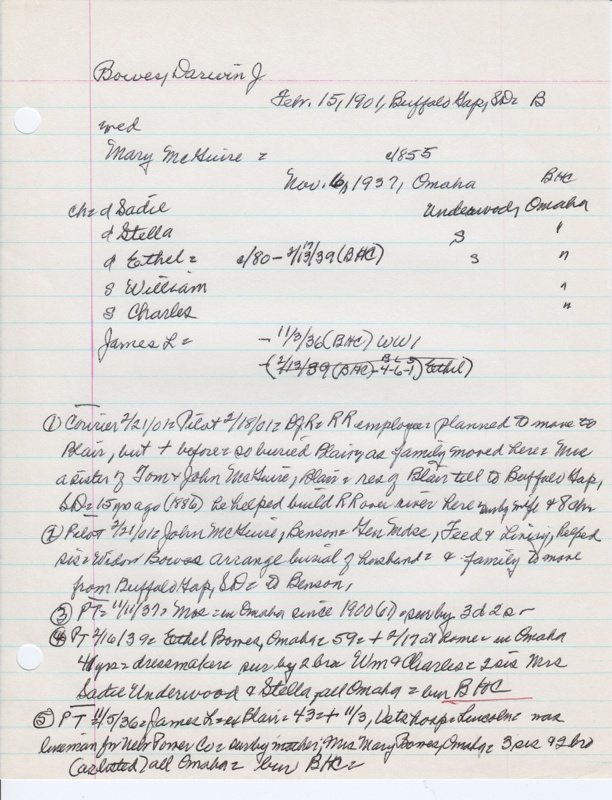 Bowes, Darwin J
Febr. 15, 1901, Buffalo Gap, SD= B
wed
Mary McGuire = c/855
Nov. 6, 1937, Omaha BHC
ch= d Sadie Underwood, Omaha
d Stella S "
d Ethel = c/80 - 2/17/39 (BHC) S "
s William "
s Charles "
James L = - 11/3/36 (BHC) WW1
(2/13/39 (BHC) B L S 4-6-1) Ethel)
① Courier 2/21/01= Pilot 2/18/01= DJR= RR employee= planned to move to
Blair, but + before= so buried Blair, as family moved here= Mrs
a sister of Tom & John McGuire, Blair= res of Blair till to Buffalo Gap,
SD= 15 yr ago (1886) he helped build RR over river here= surby wife & 8 chr
② Pilot 2/21/01= John McGuire, Benson= Gen Mdse, Feed & Livery, helped
sis= Widow Bowes arrange burial of husband= & family to move
from Buffalo Gap, SD= to Benson,
③ PT= 11/11/37= Mrs= in Omaha since 1900(1)= surby 3d 2s -
④ PT 2/16/39= Ethel Bowes, Omaha= 59= + 2/17 at home= in Omaha
41 yrs= dressmaker= surby 2 bro Wm & Charles= 2 sis Mrs
Sadie Underwood & Stella, all Omaha= bur BHC
⑤ PT 11/5/36= James L= ex Blair= 43= + 11/3, Vets hosp= Lincoln= was
lineman for Nebr Power Co= surby mother, Mrs Mary Bowes, Omaha= 3 sis & 2 bro
(as listed) all Omaha= bur BHC=